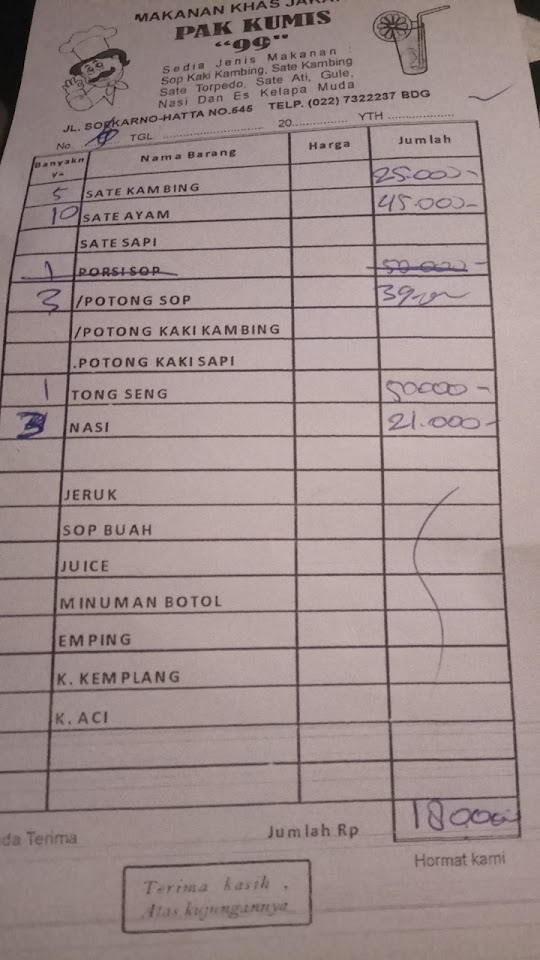 MAKANAN KHAS JAKAR
PAK KUMIS
"99"
Sedia Jenis Makanan :
Sop Kaki Kambing, Sate Kambing
Sate Torpedo, Sate Ati, Gule,
Nasi Dan Es Kelapa Muda
JL. SOEKARNO-HATTA NO.645 TELP. (022) 7322237 BDG
No. TGL .................... 20............... YTH ...................
Banyakn Nama Barang Harga Jumlah
y-
5 SATE KAMBING 25.000-
10 SATE AYAM 45.000-
SATE SAPI
1 PORSI SOP 50.000-
3 /POTONG SOP 39
/POTONG KAKI KAMBING
.POTONG KAKI SAPI
1 TONG SENG 50000-
3 NASI 21.000-
JERUK
SOP BUAH
JUICE
MINUMAN BOTOL
EMPING
K. KEMPLANG
K. ACI
da Terima Jumlah Rp 180000
Hormat kami
Terima kasih ,
Atas kujungannya